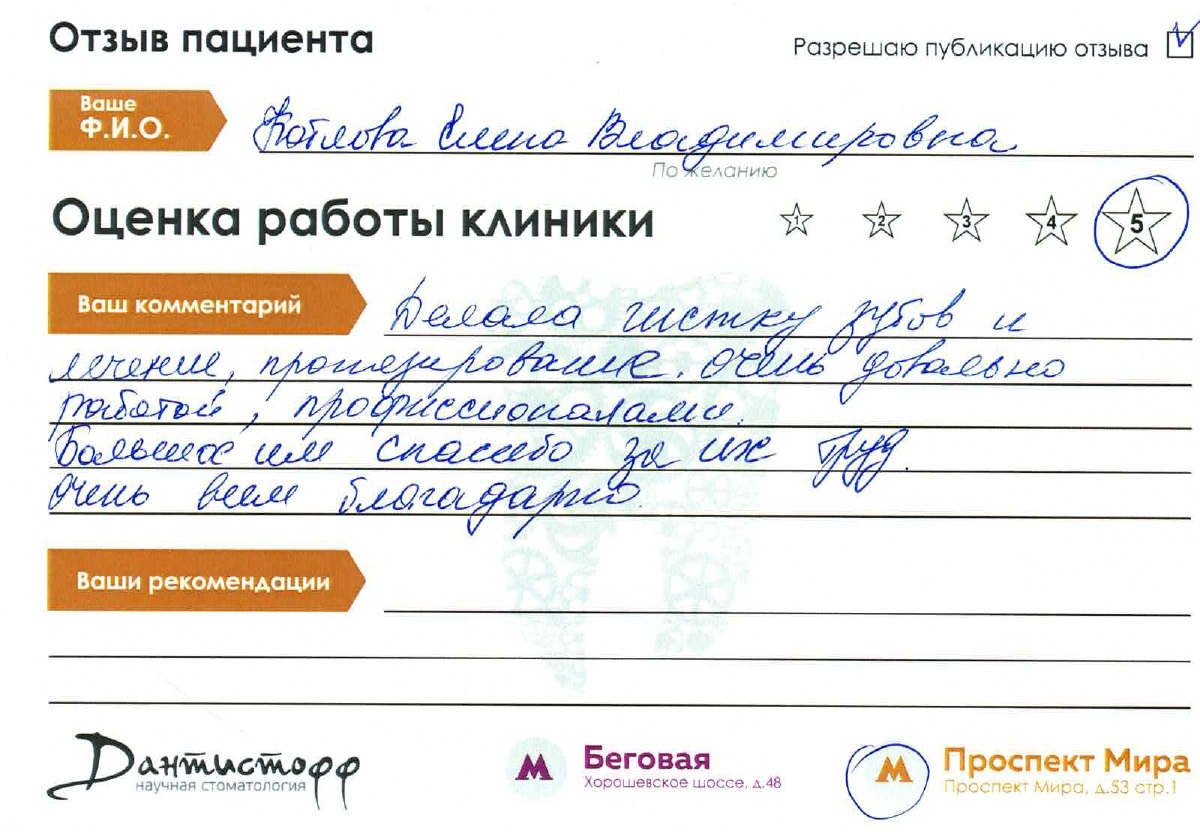 Отзыв пациента
Разрешаю публикацию отзыва
Ваше Ф.И.О.
Котлова Елена Владимировна
По желанию
Оценка работы клиники
1 2 3 4 5
Ваш комментарий
Делала чистку зубов и
лечение, протезирование. Очень довольно
работой, профессионалами.
Большое им спасибо за их труд.
Очень всем благадарно.
Ваши рекомендации
Дантистофф
научная стоматология
М Беговая
Хорошевское шоссе, д.48
М Проспект Мира
Проспект Мира, д.53 стр.1